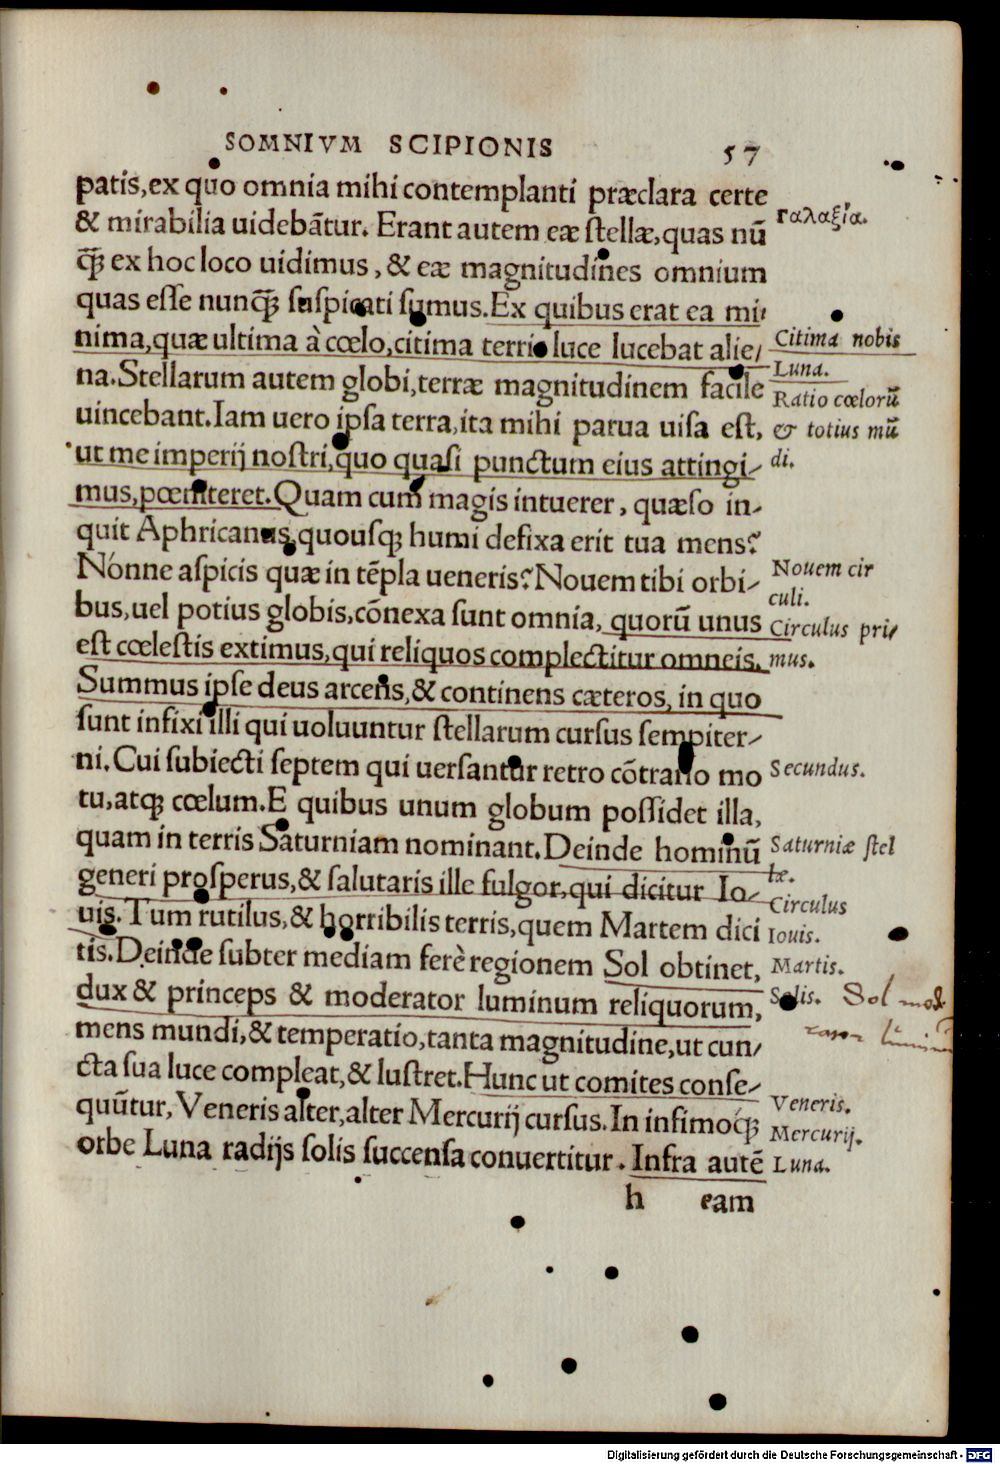 SOMNIVM SCIPIONIS 57
patis, ex quo omnia mihi contemplanti præclara certe
& mirabilia uidebãtur. Erant autem eæ stellæ, quas nũ
q̃ꝫ ex hoc loco uidimus, & eæ magnitudines omnium
quas esse nunq̃ꝫ suspicati sumus. Ex quibus erat ea mi-
nima, quæ ultima à cœlo, citima terris luce lucebat alie-
na. Stellarum autem globi, terræ magnitudinem facile
uincebant. Iam uero ipsa terra, ita mihi parua uisa est,
ut me imperij nostri, quo quasi punctum eius attingi-
mus, pœniteret. Quam cum magis intuerer, quæso in-
quit Aphricanus, quousqꝫ humi defixa erit tua mens?
Nónne aspicis quæ in tẽpla ueneris? Nouem tibi orbi-
bus, uel potius globis, cõnexa sunt omnia, quorũ unus
est cœlestis extimus, qui reliquos complectitur omneis.
Summus ipse deus arcens, & continens cæteros, in quo
sunt infixi illi qui uoluuntur stellarum cursus sempiter-
ni. Cui subiecti septem qui uersantur retro cõtrario mo
tu, atqꝫ cœlum. E quibus unum globum possidet illa,
quam in terris Saturniam nominant. Deinde hominũ
generi prosperus, & salutaris ille fulgor, qui dicitur Io-
uis. Tum rutilus, & horribilis terris, quem Martem dici
tis. Deinde subter mediam ferè regionem Sol obtinet,
dux & princeps & moderator luminum reliquorum,
mens mundi, & temperatio, tanta magnitudine, ut cun-
cta sua luce compleat, & lustret. Hunc ut comites conse-
quũtur, Veneris alter, alter Mercurij cursus. In infimóqꝫ
orbe Luna radijs solis succensa conuertitur. Infra autẽ
h eam
Γαλαξία.
Citima nobis
Luna.
Ratio cœlorũ
& totius mũ
di.
Nouem cir
culi.
Circulus pri-
mus.
Secundus.
Saturniæ stel
læ.
Circulus
Iouis.
Martis.
Solis.
Sol
Veneris.
Mercurij.
Luna.
Digitalisierung gefördert durch die Deutsche Forschungsgemeinschaft - DFG